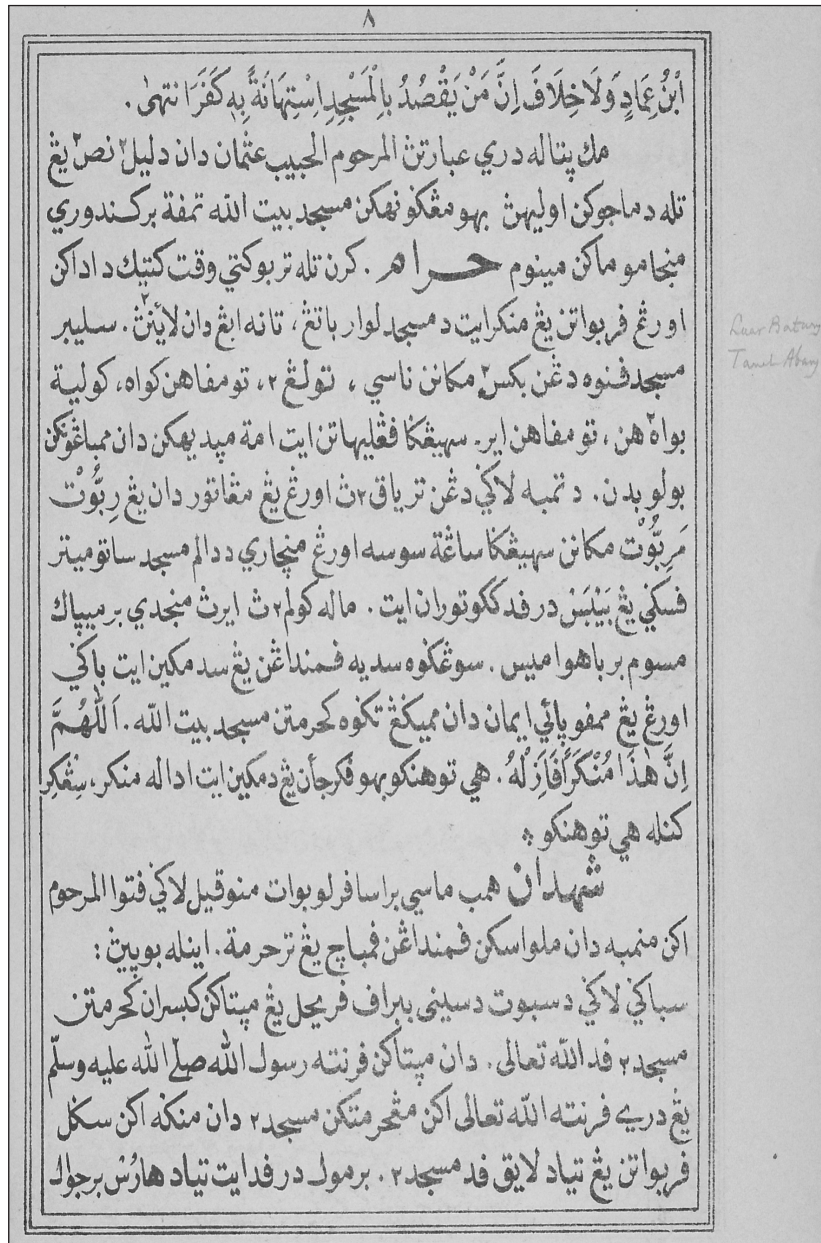 ٨
اَبْنُ عِمَادٍ وَلَا خِلَافَ اِنَّ مَنْ يَقْصُدُ بِالْمَسْجِدِ اِسْتِهَانَةً بِهِ كَفَرَ انتهى .
مك ڽتاله دري عبارتن المرحوم الحبيب عثمان دان دليل٢ نص٢ يڠ
تله دماجوكن اوليهڽ بهو مڠݢونهكن مسجد بيت الله تمفة بركندوري
منجامو ماكن مينوم حرام . كرن تله تربوكتي وقت كتيك د اداكن
اورڠ فربواتن يڠ منكر ايت د مسجد لوار باتڠ ، تانه ابڠ دان لائينڽ٢ . سليبر
مسجد فنوه دڠن بكس٢ مكانن ناسي ، تولڠ ٢ ، تومفاهن كواه ، كولية
بواه٢هن ، تومفاهن اير . سهيڠݢا فڠليهاتن ايت امة مڽديهكن دان ممباڠونكن
بولو بدن . د تمبه لاݢي دڠن ترياق ٢ث اورڠ يڠ مڠاتور دان يڠ رِبُوْت
مَرِبُوْت مكانن سهيڠݢا ساڠة سوسه اورڠ منچاري د دالم مسجد ساتو ميتر
فسݢي يڠ بَيْبَسْ در فد ككوتوران ايت . ماله كولم ٢ث ايرث منجدي برميڽاك
مسوم برباهو اميس . سوڠݢوه سديه فمنداڠن يڠ سدمكين ايت باݢي
اورڠ يڠ ممفوڽائي ايمان دان مميݢڠ تݢوه كحرمتن مسجد بيت الله . اَللّٰهُمَّ
اِنَّ هٰذَا مُنْكَرًا فَاَزِلْهُ . هي توهنكو بهو فكرجأن يڠ دمكين ايت اداله منكر ، سِڠْكِر
كنله هي توهنكو ⁂
شهدان همب ماسي براس افرلو بوات منوقيل لاݢي فتوا المرحوم
اكن منمبه دان ملواسكن فمنداڠن فمباچ يڠ ترحرمة . اينله بوڽيڽ :
سباݢي لاݢي دسبوت دسيني ببراف فريحل يڠ مڽتاكن كبسران كحرمتن
مسجد ٢ فد الله تعالى . دان مڽتاكن فرنته رسول الله صلّى الله عليه وسلّم
يڠ دري فرنته الله تعالى اكن مڠحرمتكن مسجد ٢ دان منكه اكن سكل
فربواتن يڠ تياد لايق فد مسجد ٢ . برمول در فد ايت تياد هارُسْ برجوال
Luar Batang
Tanah Abang